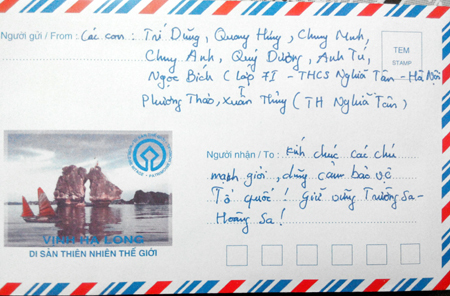 Người gửi / From : Các con : Trí Dũng, Quang Hưng, Chung Minh,
Chung Anh, Quý Dương, Anh Tú,
Ngọc Bích (lớp 7I - THCS Nghĩa Tân - Hà Nội
Phương Thảo, Xuân Thủy (TH Nghĩa Tân)
TEM
STAMP
Người nhận / To : Kính chúc các chú
mạnh giỏi, dũng cảm bảo vệ
Tổ quốc! Giữ vững Trường Sa-
Hoàng Sa!
VỊNH HẠ LONG
DI SẢN THIÊN NHIÊN THẾ GIỚI